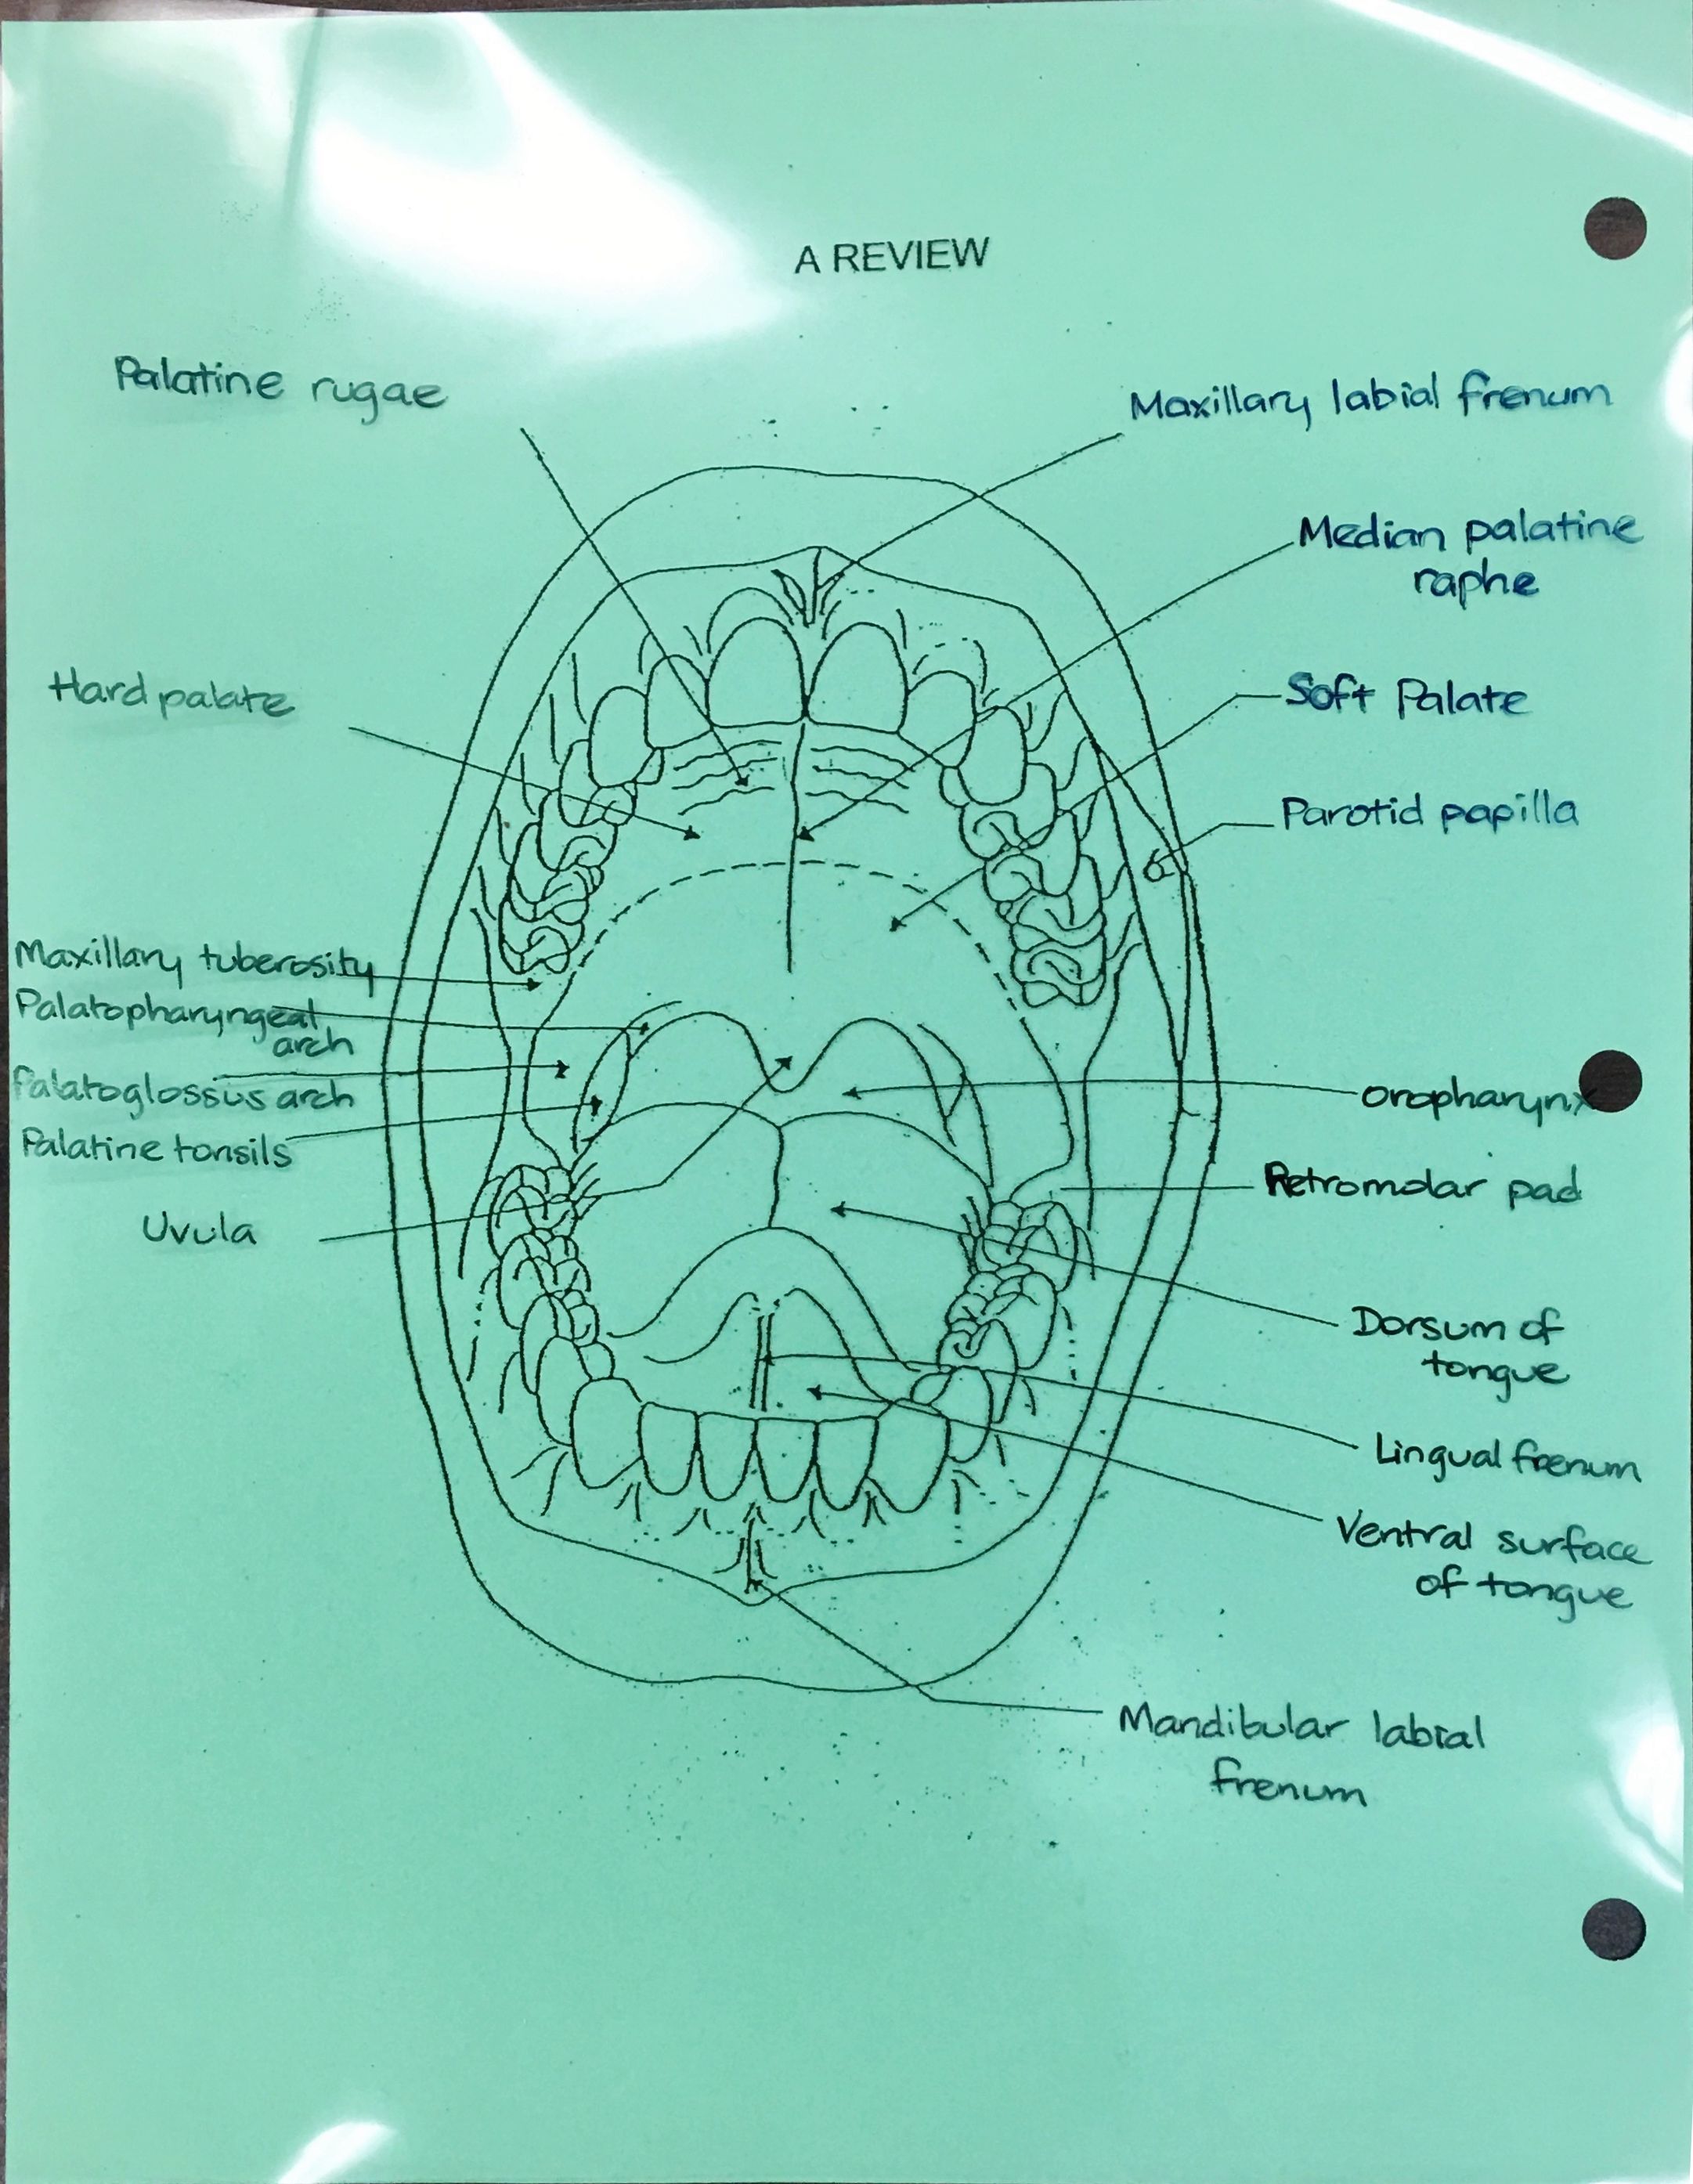 A REVIEW
Palatine rugae
Maxillary labial frenum
Median palatine
raphe
Hard palate
Soft Palate
Parotid papilla
Maxillary tuberosity
Palatopharyngeal
arch
Palatoglossus arch
Palatine tonsils
Uvula
Oropharynx
Retromolar pad
Dorsum of
tongue
Lingual frenum
Ventral surface
of tongue
Mandibular labial
frenum